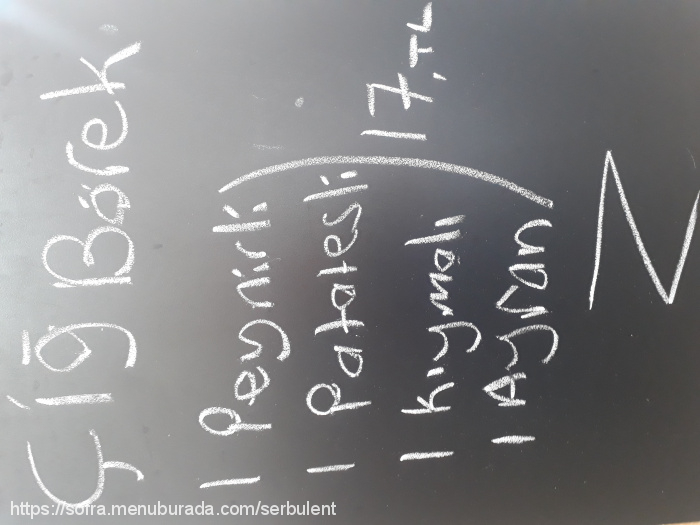 Çiğ Börek.
1 Peynirli
1 Patatesli
1 kıymalı
1 Ayran
17,TL
https://sofra.menuburada.com/serbulent